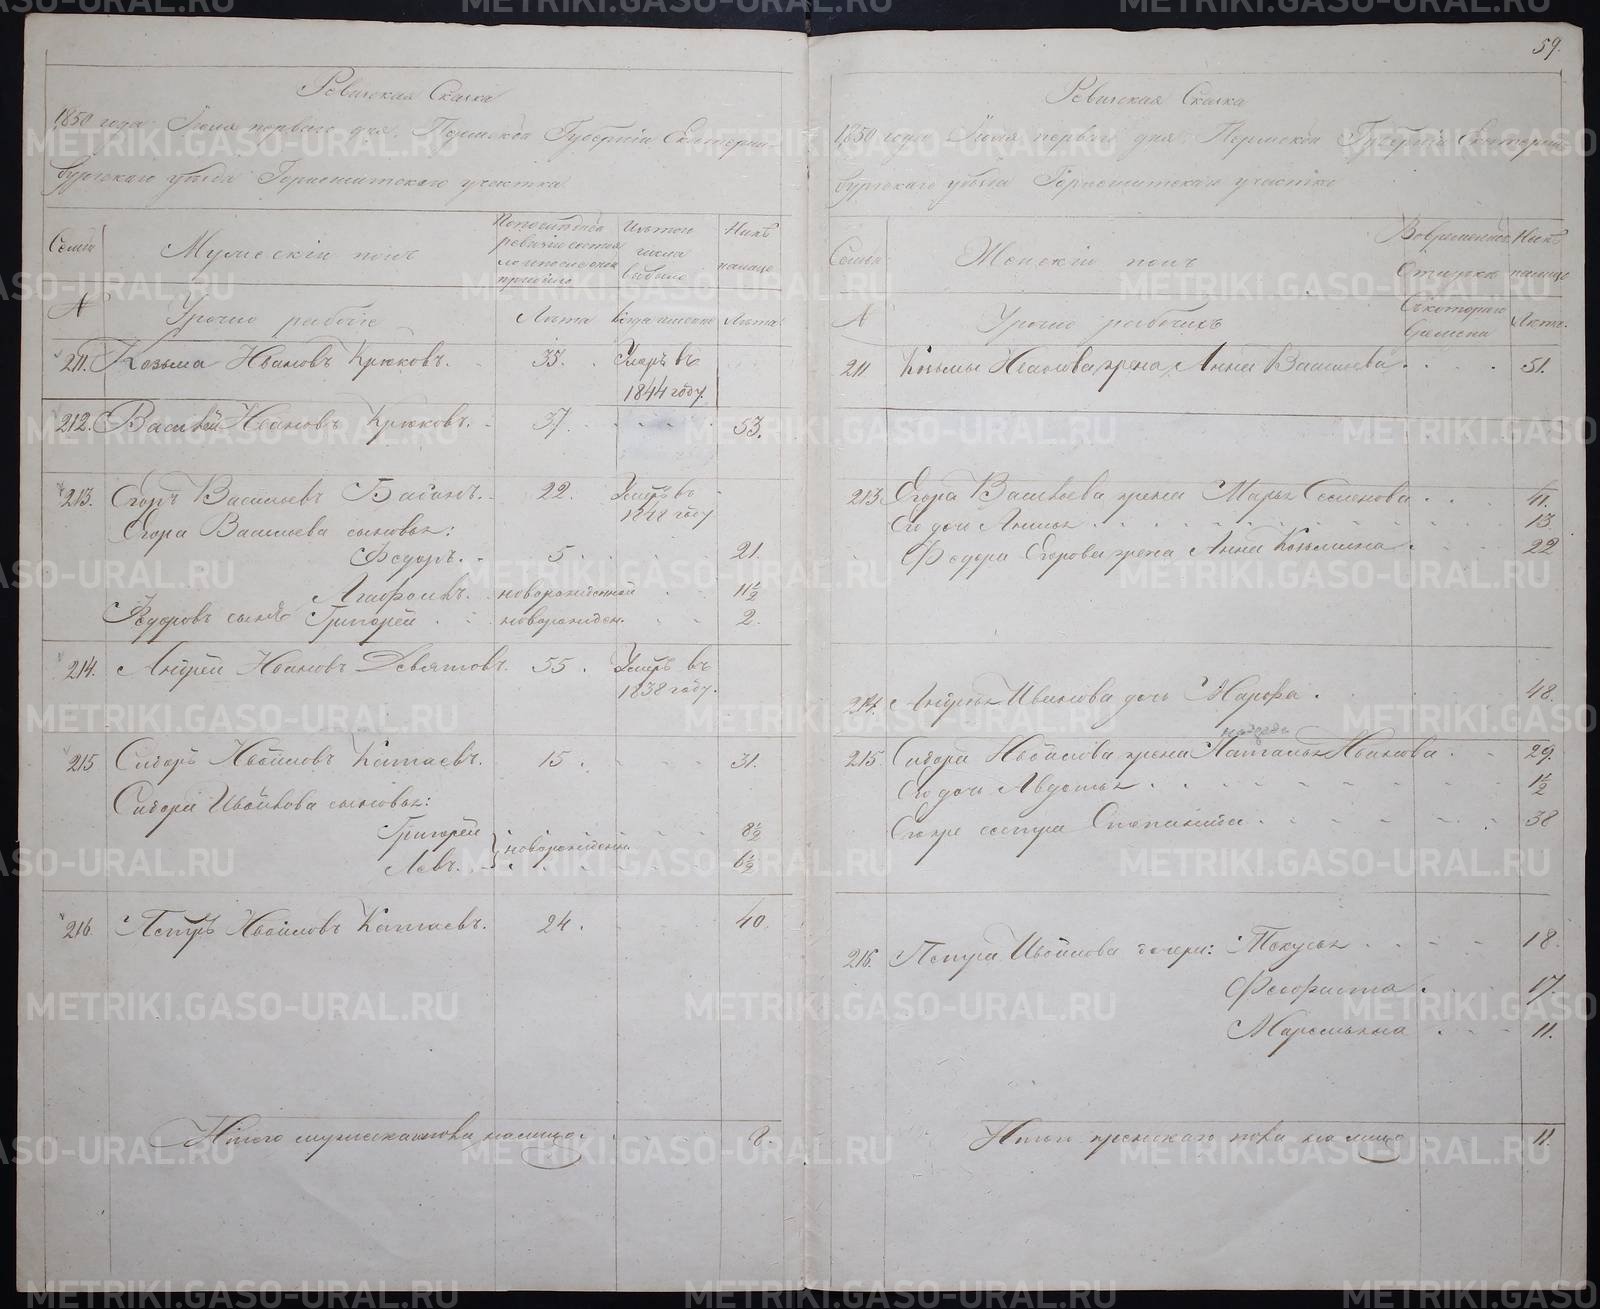 59.
Ревизская Сказка
1850 года Июня первого дня. Пермской Губерніи Екатерин-
бургскаго уѣзда Горнощитскаго участка
Семьи
Мужескій полъ
Изтого числа выбыло
Нынѣ налицо
№
Урочно рабочіе
Лѣта
когда именно
Лѣта
211. Козьма Ивановъ Крюковъ. 35. Умеръ въ
1844 году.
212. Василей Ивановъ Крюковъ. 37. 53.
213. Егоръ Васильевъ Бабинъ. 22. Умеръ въ
1848 году
Егора Васильева сыновья:
Федоръ. 5 21.
Агафонъ. новорожденной 11½
Федоровъ сынъ Григорей новорожден. 2.
214. Андрей Ивановъ Девятовъ. 55. Умеръ въ
1838 году.
215 Сидоръ Ивойловъ Катаевъ. 15. 31.
Сидора Ивойлова сыновья:
Григорей 8½
новорожденн.
Левъ. 6½
216. Петръ Ивойловъ Катаевъ. 24. 40.
Итого мужескаго пола налицо. 8.
Ревизская Сказка
1850 года Июня первого дня. Пермской Губерніи Екатерин-
бургскаго уѣзда Горнощитскаго участка
Семьи
Женскій полъ
Вовременной Отлучкѣ
Нынѣ налицо
№
Урочно рабочихъ
Съкотораго времени
Лѣта.
211 Козьмы Иванова жена Анна Васильева. 51.
213 Егора Васильева жена Марья Семенова 41.
Его дочь Анисья 13
Федора Егорова жена Анна Козьмина 22
214. Андрея Иванова дочь Марфа. 48.
215 Сидора Ивойлова жена Наталья Иванова 29.
Его дочь Авдотья 1½
Его же сестра Степанида 38
216. Петра Ивойлова дочери: Текуса 18.
Феофиста 17.
Маремьяна 11.
Итого женскаго пола налицо 11.
METRIKI.GASO-URAL.RU